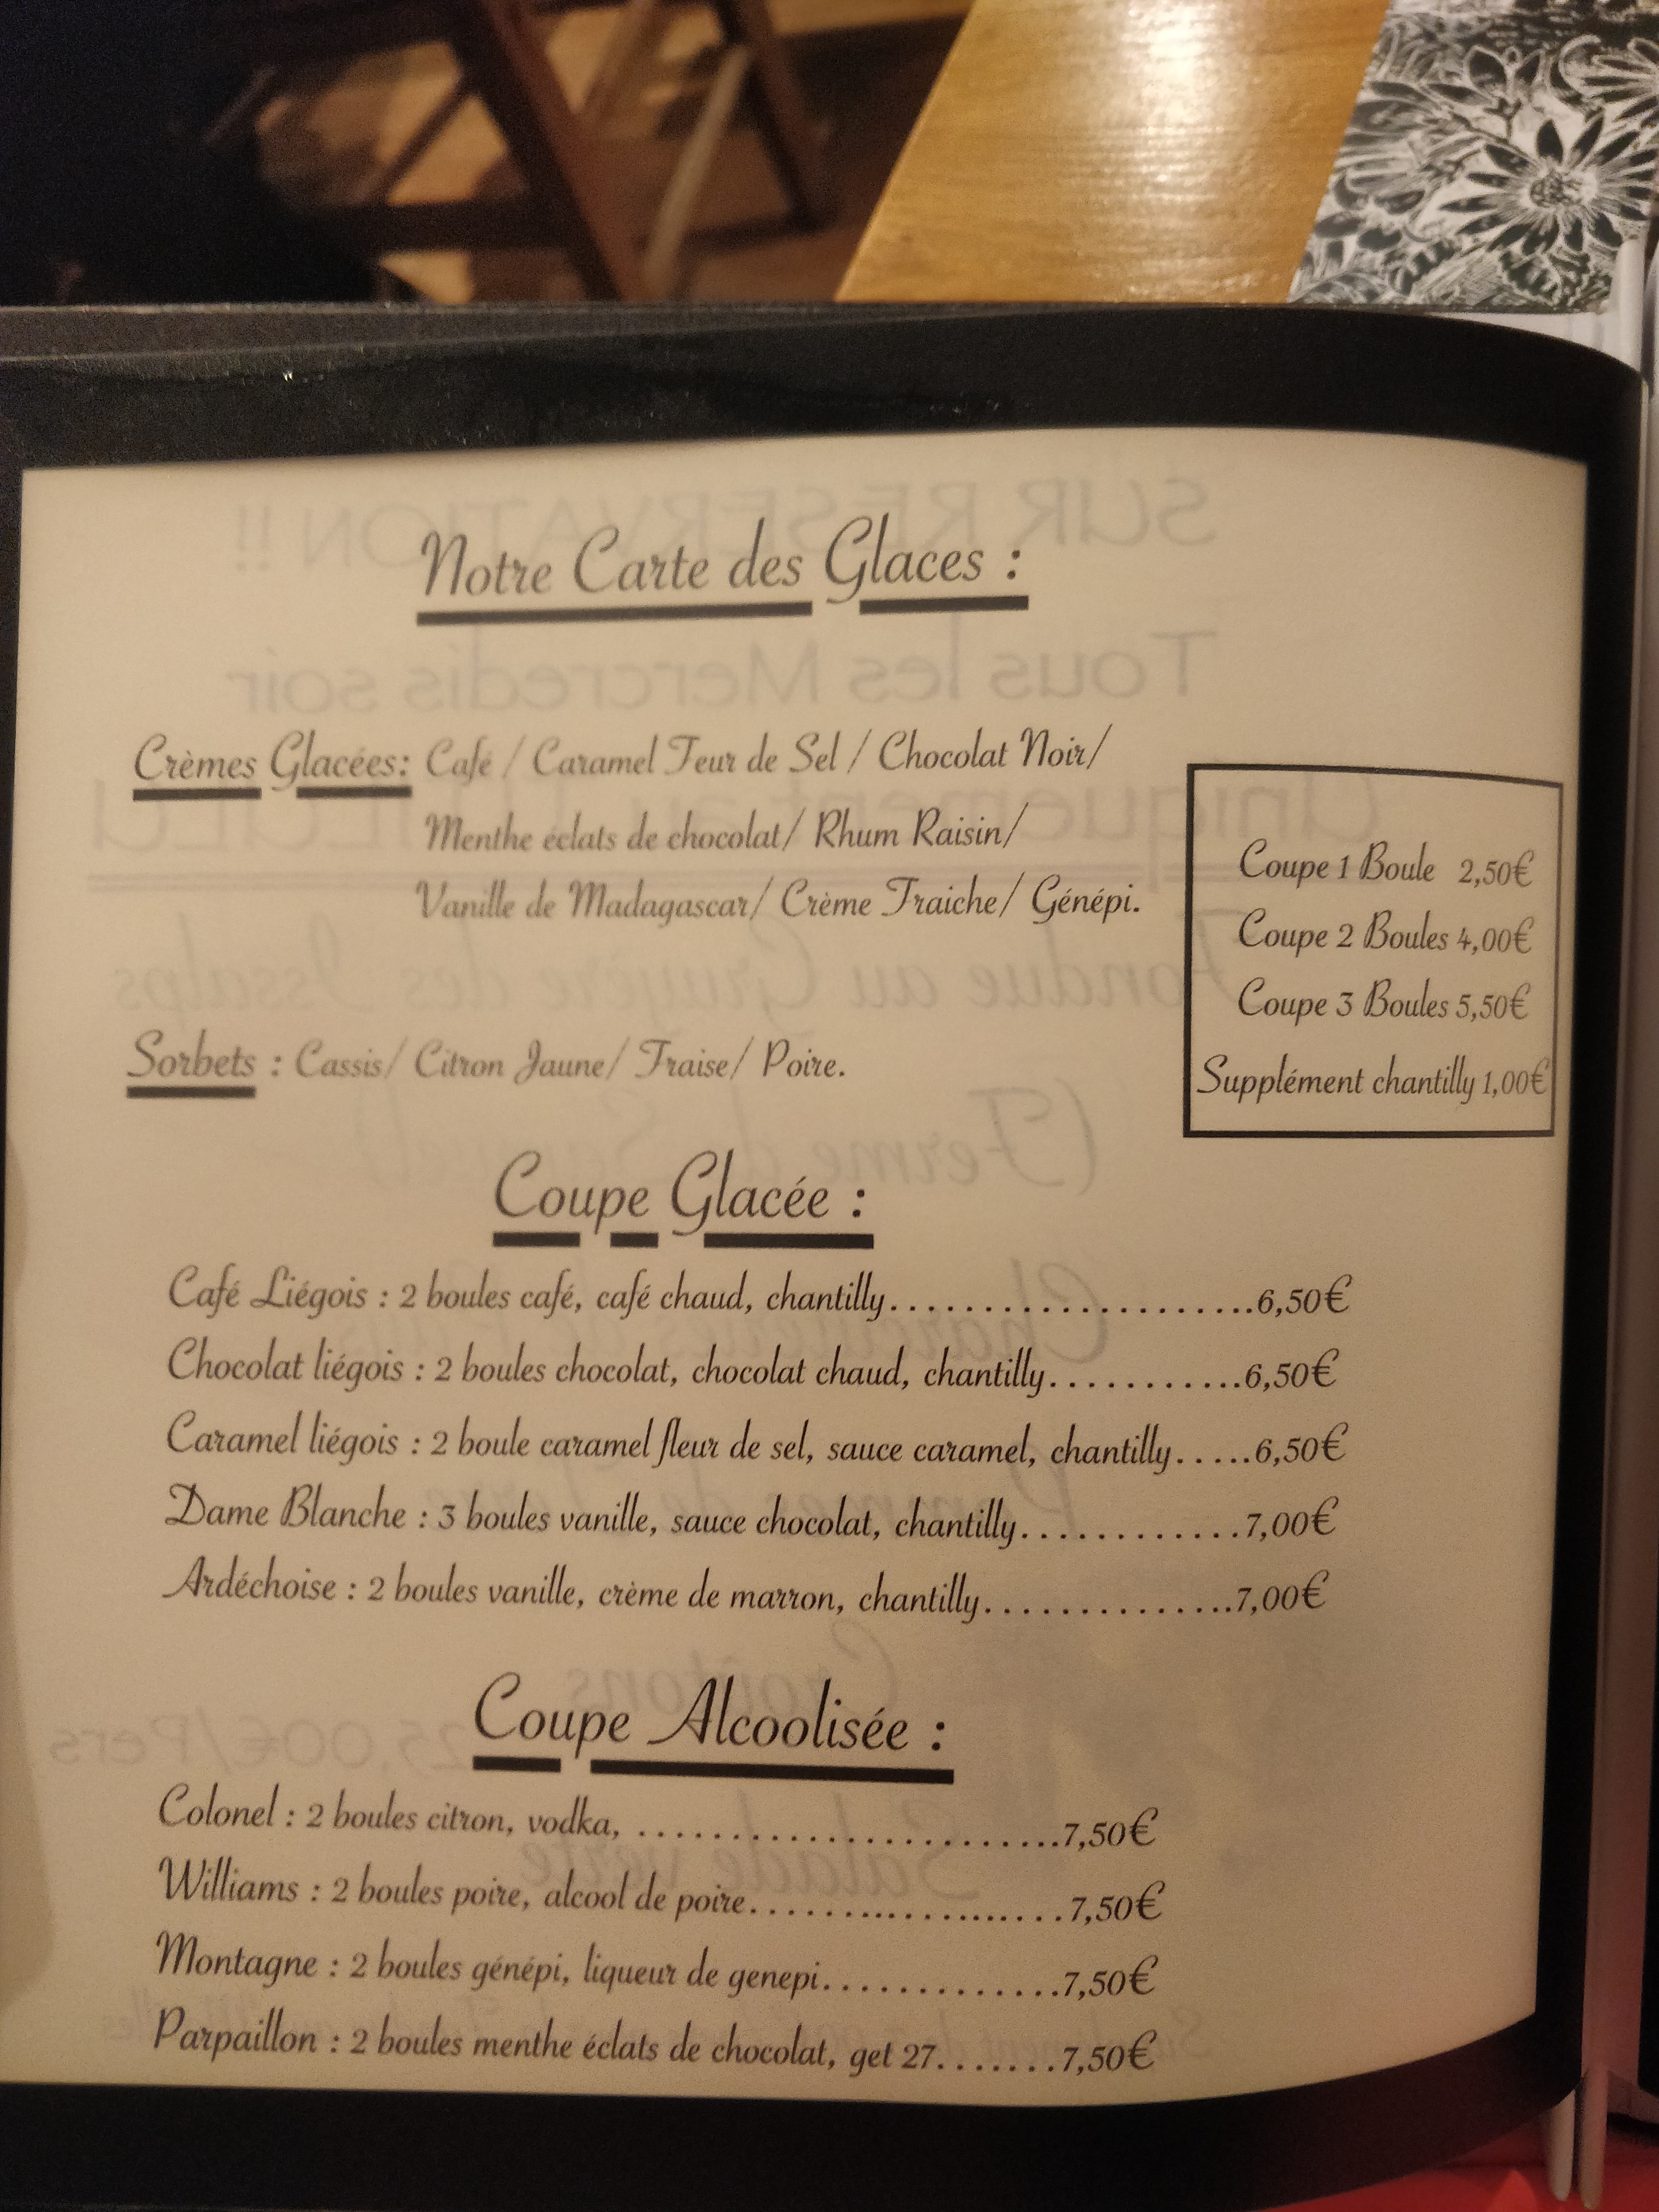 Notre Carte des Glaces :
Crèmes Glacées: Café / Caramel Feur de Sel / Chocolat Noir/
Menthe éclats de chocolat/ Rhum Raisin/
Vanille de Madagascar/ Crème Fraiche/ Génépi.
Sorbets : Cassis/ Citron Jaune/ Fraise/ Poire.
Coupe 1 Boule 2,50€
Coupe 2 Boules 4,00€
Coupe 3 Boules 5,50€
Supplément chantilly 1,00€
Coupe Glacée :
Café Liégois : 2 boules café, café chaud, chantilly......................6,50€
Chocolat liégois : 2 boules chocolat, chocolat chaud, chantilly............6,50€
Caramel liégois : 2 boule caramel fleur de sel, sauce caramel, chantilly......6,50€
Dame Blanche : 3 boules vanille, sauce chocolat, chantilly.............7,00€
Ardéchoise : 2 boules vanille, crème de marron, chantilly................7,00€
Coupe Alcoolisée :
Colonel : 2 boules citron, vodka, .........................7,50€
Williams : 2 boules poire, alcool de poire......................7,50€
Montagne : 2 boules génépi, liqueur de genepi..............7,50€
Parpaillon : 2 boules menthe éclats de chocolat, get 27........7,50€
SUR RESERVATION !!
Tous les Mercredis soir
Uniquement au
Fondue au Gruyère des Issalps
(Ferme
Croûtons
25,00€/Pers
Salade verte